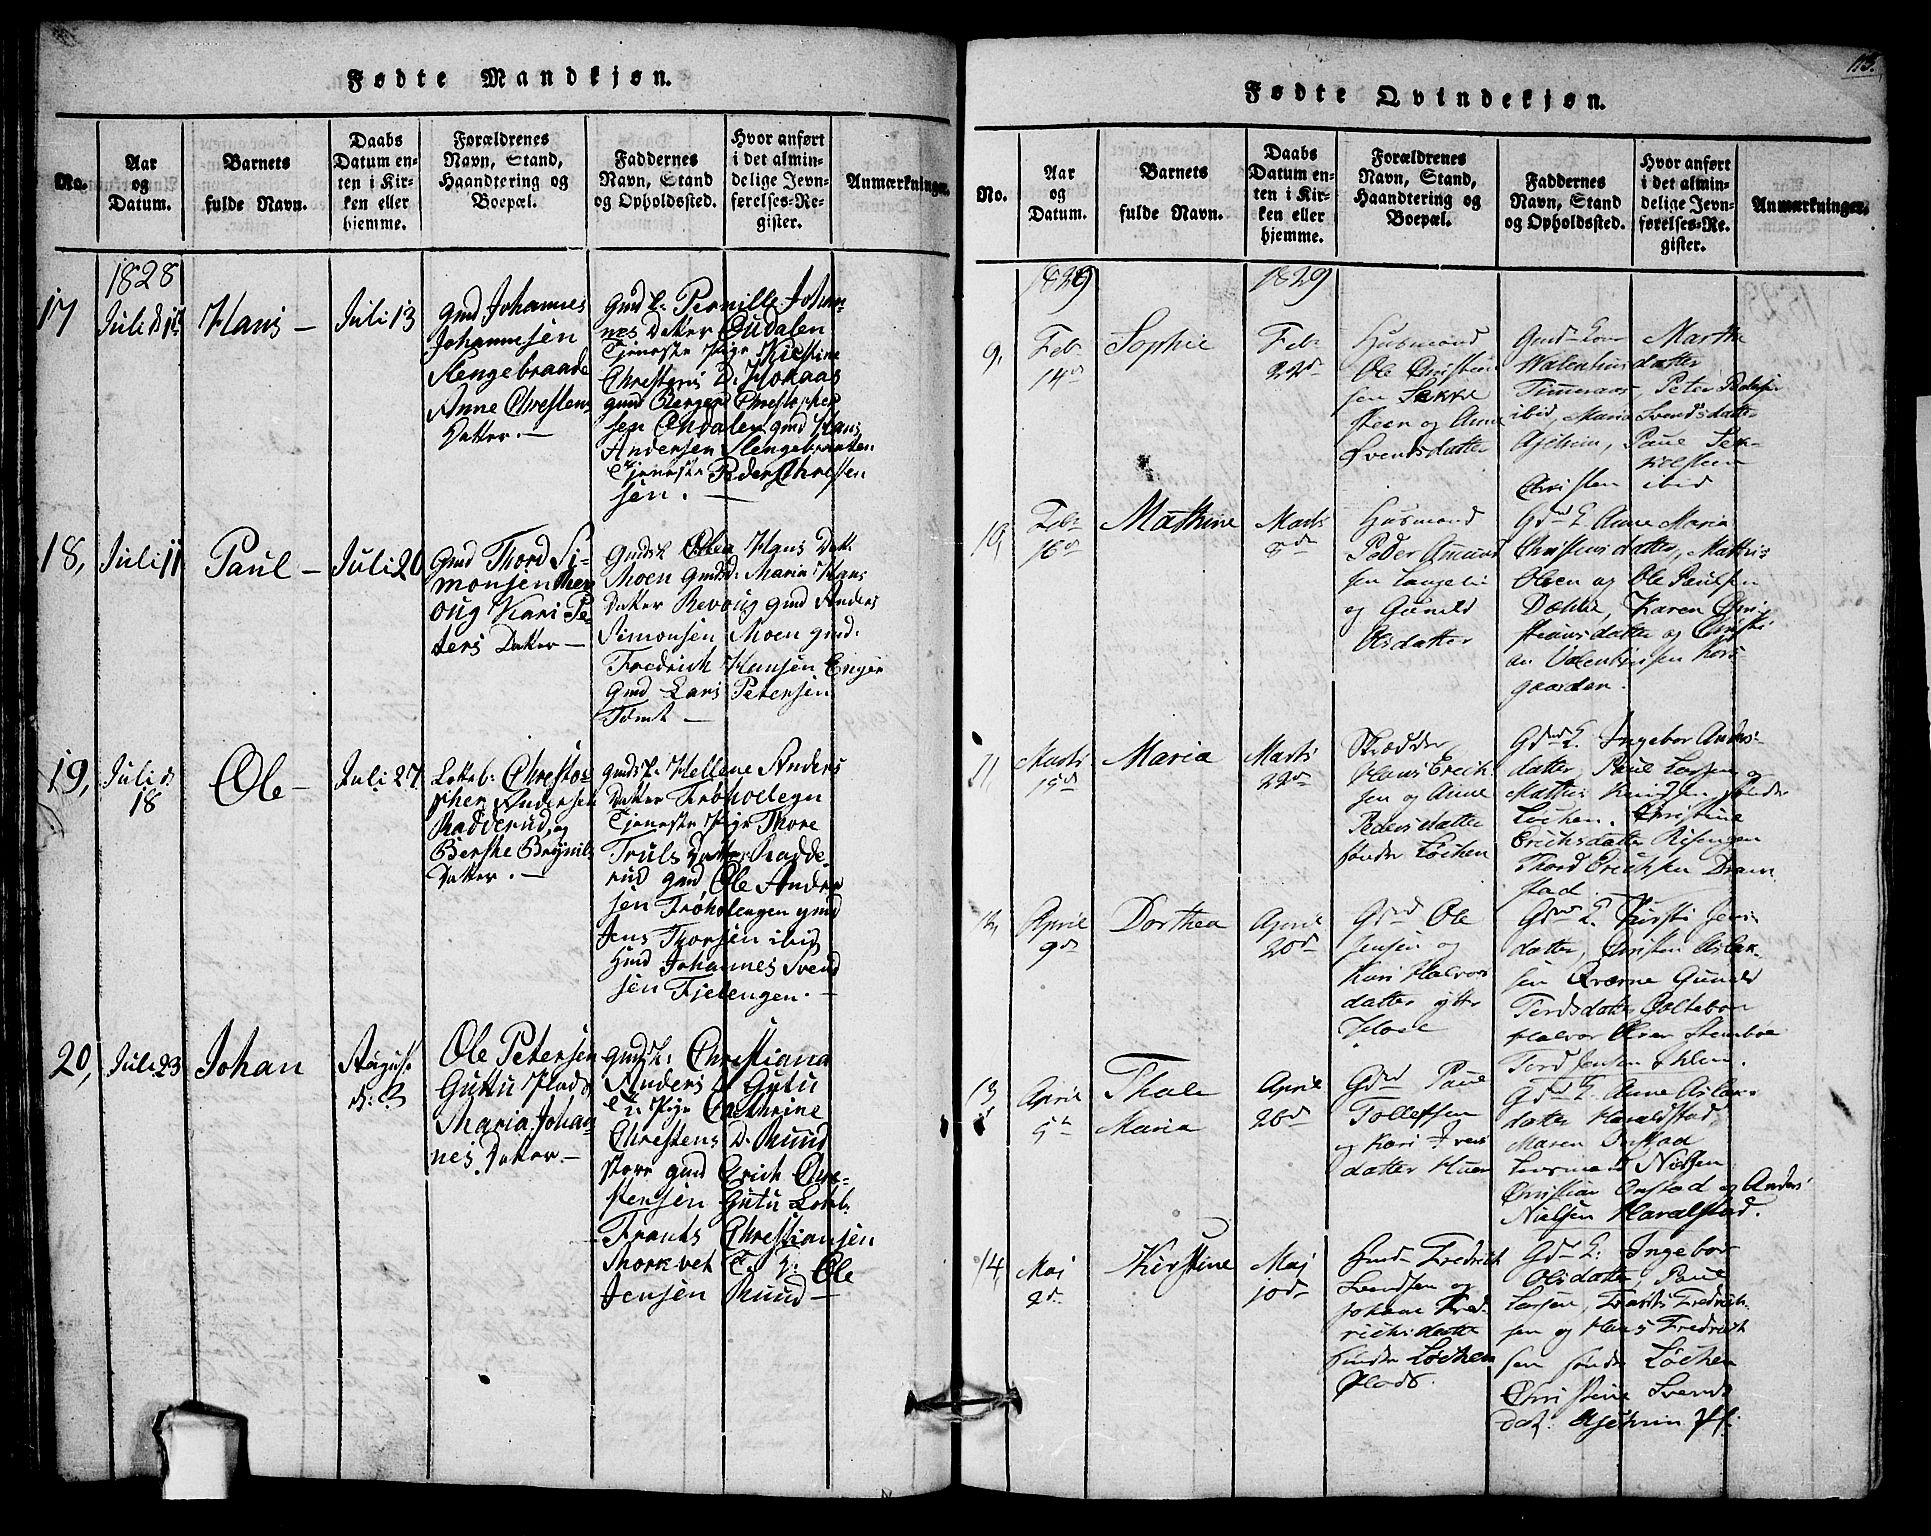 Fødte Mandkjøn.
No.
Aar
og
Datum.
Barnets
fulde Navn.
Daabs
Datum en-
ten i Kir-
ken eller
hjemme.
Forældrenes
Navn, Stand,
Haandtering og
Boepæl.
Faddernes
Navn, Stand
og Opholdssted.
Hvor anført
i det almin-
delige Jevn-
førelses-Re-
gister.
Anmærkninger.
1828
17
Hans —
Juli 13
Gmd Johannes
Johannesen
Slengebraade
Anne Christens
Datter. —
Gmd k: Pernille Johan-
nes Datter Eudalen
Tjeneste Pige Kirstine
Christens D: Hokaas
Gmd Berger Christopher
sen Eudalen gmd Hans
Andersen Slengebraaten
Tjeneste Peder Christen
sen. —
18,
Juli 11
Paul —
Juli 20
Gmd Thord Si-
monsen
oug Kari Pe-
ters Datter —
Hans Datt:
Moen Gmdsd: Maria Hans
Datter Revoug Gmd Anders
Simonsen Moen gmd:
Fredrich Hansen Enger
Gmd Lars Petersen
Tomt —
19,
Juli d
18
Ole —
Juli 27
Christo-
pher Andersen
Radverud, og
Berthe Brynils
Datter. —
Gmdsk: Hellene Anders
Datter Frøhollegn
Tjeneste Pige Thore
Truls Datter Radde-
rud gmd, Ole Ander
sen Frøholengen gmd
Jens Thorsen ibid
Hmd Johannes Svend
sen Fjelengen. —
20,
Juli 23
Johan
August
d: 3
Ole Petersen
Guttu Plads
Maria Johan-
nes Datter —
Gmdsk: Christiana
Anders D Gutu
Tj: Pige Cathrine
Christens D. Ruud
store gmd Erich Chri-
stensen Gutu
Frants Christiansen
Thorkvet Ole
Jensen Ruud —
113.
Fødte Qvindekjøn.
No.
Aar
og
Datum.
Barnets
fulde Navn.
Daabs
Datum en-
ten i Kir-
ken eller
hjemme.
Forældrenes
Navn, Stand,
Haandtering og
Boepæl.
Faddernes
Navn, Stand
og Opholdssted.
Hvor anført
i det almin-
delige Jevn-
førelses-Re-
gister.
Anmærkninger.
1829
1829
9,
Feb:
14d
Sophie
Feb:
22d
Husmand
Ole Christen
sen Sekke
steen og Anne
Svendsdatter
Marthe
Valentinsdatter
Timeraas, Peter Pedersen
ibid, Maria Svendsdatter
Asehim, Paul Sek-
kesteen
Christen ibid
10,
Feb:
16d
Mathine
Marts
8d
Husmand
Peder Amund
sen Langeli
og Gunild
Olsdatter
Gd E Anne Maria
Christensdatter, Mathis
Olsen og Ole Paulsen
Dæhlie, Karen Chri-
stiansdatter og Christi
an Valentinsen Kors
gaarden.
11
Marts
15d
Maria
Marts
22d
Skrædder
Hans Erich
sen og Anne
Pedersdatter
søndre Løchen
Gd E. Ingebor Anders-
datter, Paul Larsen og
Mathis Knudsen søndre
Løchen. Christine
Erichsdatter Risengen
Thord Erichsen Dram
stad.
12,
April
9d
Dorthea
April
20d
Gd Ole
Jensen og
Kari Halvors
datter ytter
Hoel
Gd E. Kirsti Jens
datter, Christen Aslak-
sen Qværne Gunild
Tordsdatter Toltebon
Halvor Stenboe
Tord Jensen Ihlen.
13
April
5h
Thale
Maria
April
26d
Gd Paul
Tollefsen
og Kari Ivers
datter Huer
Gd E. Anne Aslaks-
datter Haraldstad
Maren Onstad
Nilsen
Christian Onstad og Anders
Nielsen Haralstad.
14,
Maj
2d
Kirstine
Maj
10d
Hmd Fredrich
Svendsen og
Johane Fred-
richsdatter
søndre Løchen
Plads.
Gd E: Ingebor
Olsdatter, Paul
Larsen, Frants Fredrich-
sen og Hans Fredrich
sen søndre Løchen
Christine Svends
dat: Asehim Pl: